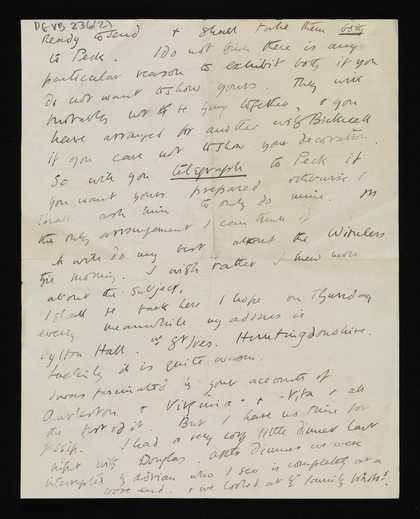 ready to send & shall take them both
to Peck. I do not think there is any
particular reason to exhibit both if you
do not want to show yours. They will
probably not be together, & you
have arranged for another with Bicknell
if you care not to show your decoration.
So will you telegraph to Peck if
you want yours prepared otherwise I
shall ask him to only do mine. It is
the only arrangement I can think of.
I will do my best about the Wireless
this morning. I wish rather I knew more
about the subject.
I shall be back here I hope on Thursday
evening meanwhile my address is
Hilton Hall. nr St Ives. Huntingdonshire.
luckily it is quite warm.
I was fascinated by your accounts of
Charleston & Virginia & Vita & all
the rest of it. But I have no time for
gossip. I had a very cosy little dinner last
night with Douglas. After dinner we were
interrupted by Adrian who I see is completely at a
loose end. & we looked at family